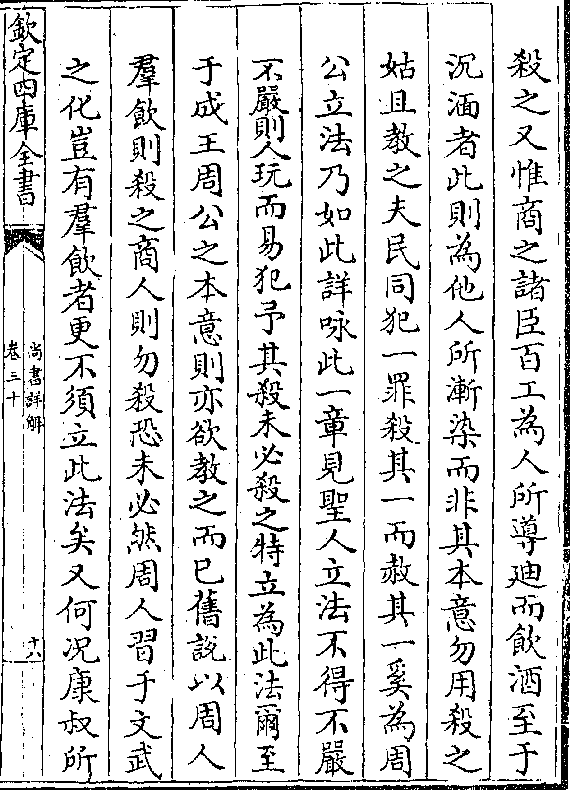 殺之又惟商之諸臣百工為人所導廸而飲酒至于
沉湎者此則為他人所漸染而非其本意勿用殺之
姑且教之夫民同犯一罪殺其一而赦其一奚為周
公立法乃如此詳咏此一章見聖人立法不得不嚴
不嚴則人玩而易犯予其殺未必殺之特立為此法爾至
于成王周公之本意則亦欲教之而已舊說以周人
羣飲則殺之商人則勿殺恐未必然周人習于文武
之化豈有羣飲者更不須立此法矣又何况康叔所
欽定四庫全書
尚書詳解
卷三十
十八